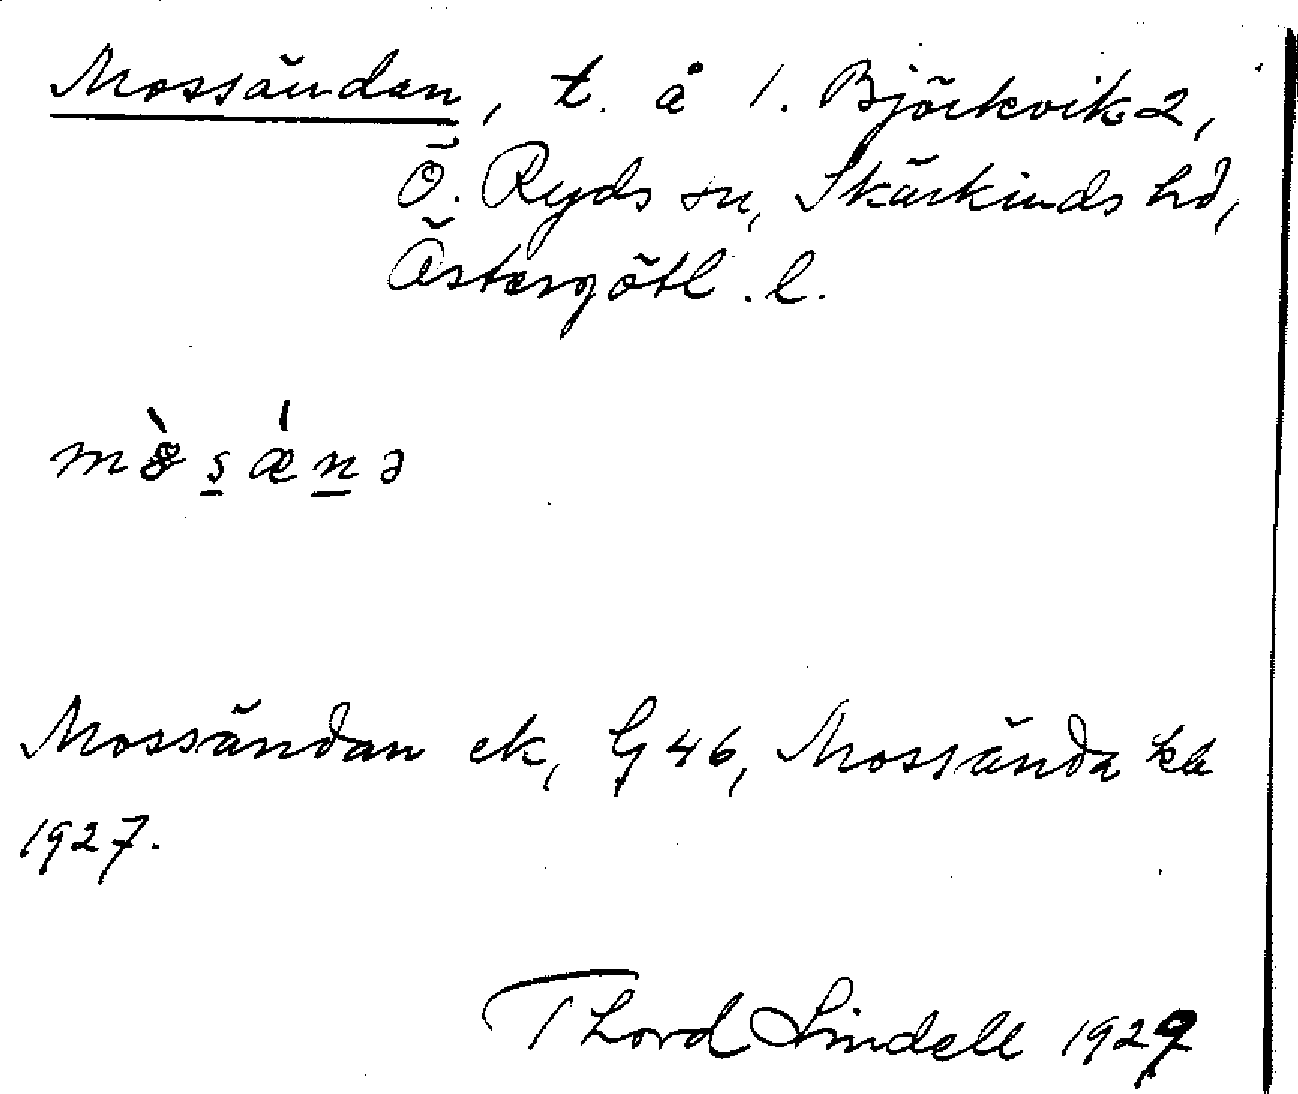 Mossändan, t. å 1. Björkvik 2,
Ö. Ryds sn, Skärkinds hd,
Östergötl. l.
mòsǽnə
Mossändan ek, G46, Mossända kb
1927.
Thord Lindell 1929